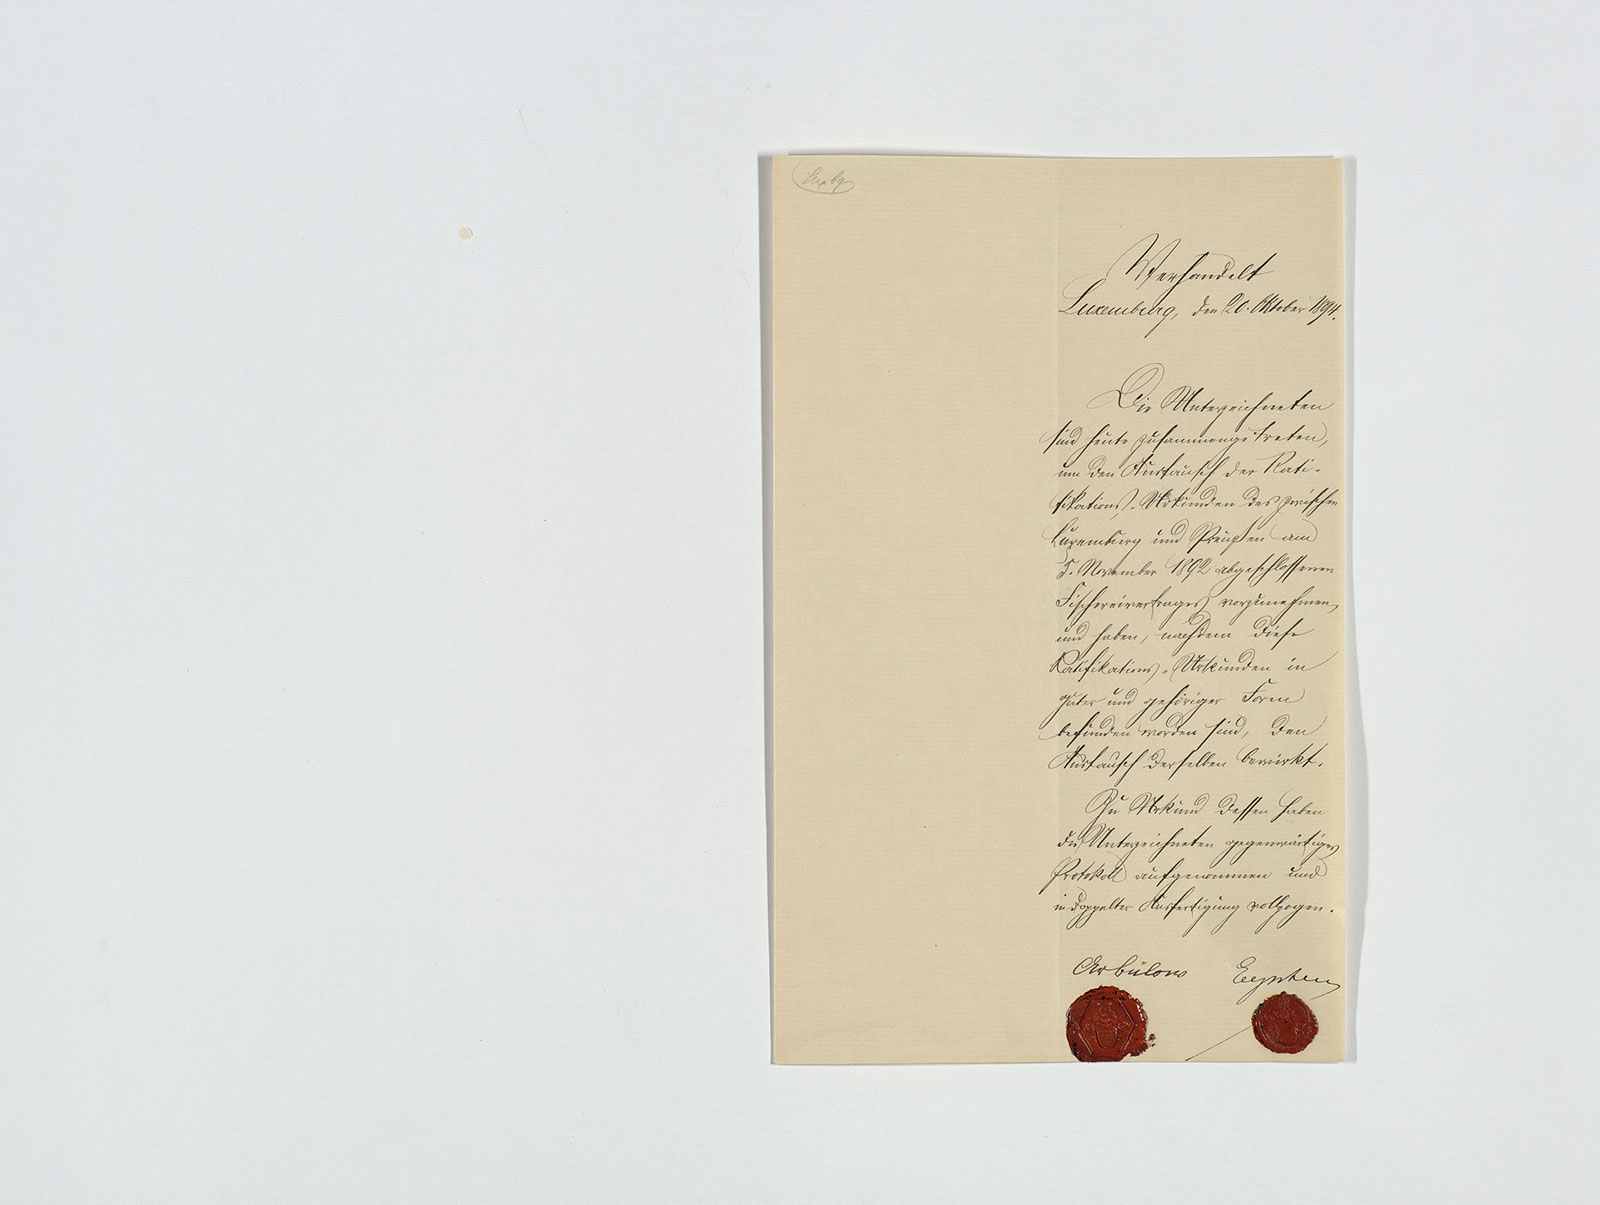 Verhandelt
Luxemburg, den 20. Oktober 1894.
Die Unterzeichneten
sind heute zusammengetreten,
um den Austausch der Rati-
fikations-Urkunden des zwischen
Luxemburg und Preußen am
5. November 1892 abgeschlossenen
Fischereivertrages vorzunehmen,
und haben, nachdem diese
Ratifikations-Urkunden in
guter und gehöriger Form
befunden worden sind, den
Austausch derselben bewirkt.
Zu Urkund dessen haben
die Unterzeichneten gegenwärtiges
Protokoll aufgenommen und
in doppelter Ausfertigung vollzogen.
Bülow Eyschen